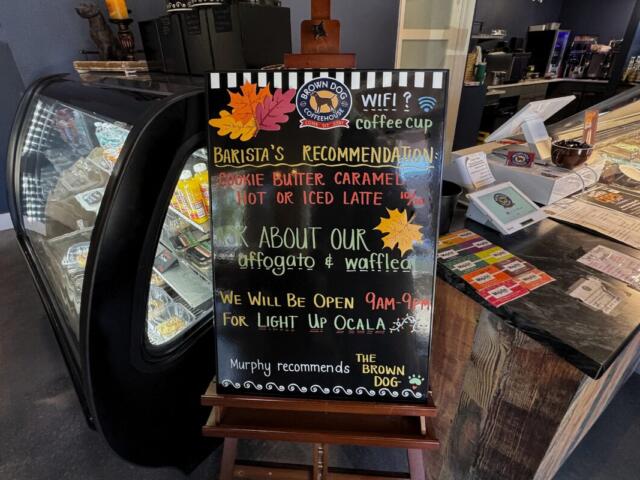 BROWN DOG
COFFEEHOUSE
COME SIT STAY
WIFI?
coffee cup
BARISTA'S RECOMMENDATION:
COOKIE BUTTER CARAMEL
HOT OR ICED LATTE
ASK ABOUT OUR
affogato & waffles
WE WILL BE OPEN 9AM-9PM
FOR LIGHT UP OCALA
Murphy recommends THE
BROWN
DOG